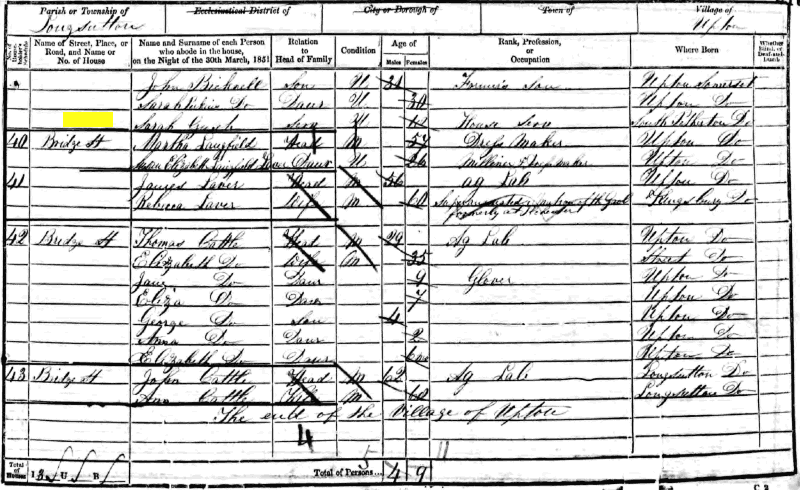 Parish or Township of Ecclesiastical District of City or Borough of Town of Village of
Long Sutton Upton
No. of House of Street, Place, or Road, and Name or No. of House Name and Surname of each Person who abode in the house, on the Night of the 30th March, 1851 Relation to Head of Family Condition Age of Males Females Rank, Profession, or Occupation Where Born Whether Blind, or Deaf-and-Dumb
John Bicknell Son U 31 Farmers Son Upton Somerset
Do Daur U 30 Upton Do
Sarah U House South Petherton Do
40 Bridge St Martha Langfield Head M 57 Dress Maker Upton Do
Elizabeth Langfield Daur U 26 Milliner & Upton Do
41 James Laver Head M 56 Ag Lab Upton Do
Rebecca Laver Wife M 60 of the Kingsbury Do
formerly at
42 Bridge St Thomas Cattle Head M 29 Ag Lab Upton Do
Elizabeth Do Wife M 35 Street Do
Jane Do Daur 9 Glover Upton Do
Eliza Do Daur 7 Upton Do
George Do Son 4 Upton Do
Anna Do Daur 2 Upton Do
Elizabeth Do Daur Upton Do
43 Bridge St John Cattle Head M 62 Ag Lab Long Sutton Do
Ann Cattle Wife M 60 Long Sutton Do
The end of the Village of Upton
4
Total of Houses I U B Total of Persons 5 11
4 9